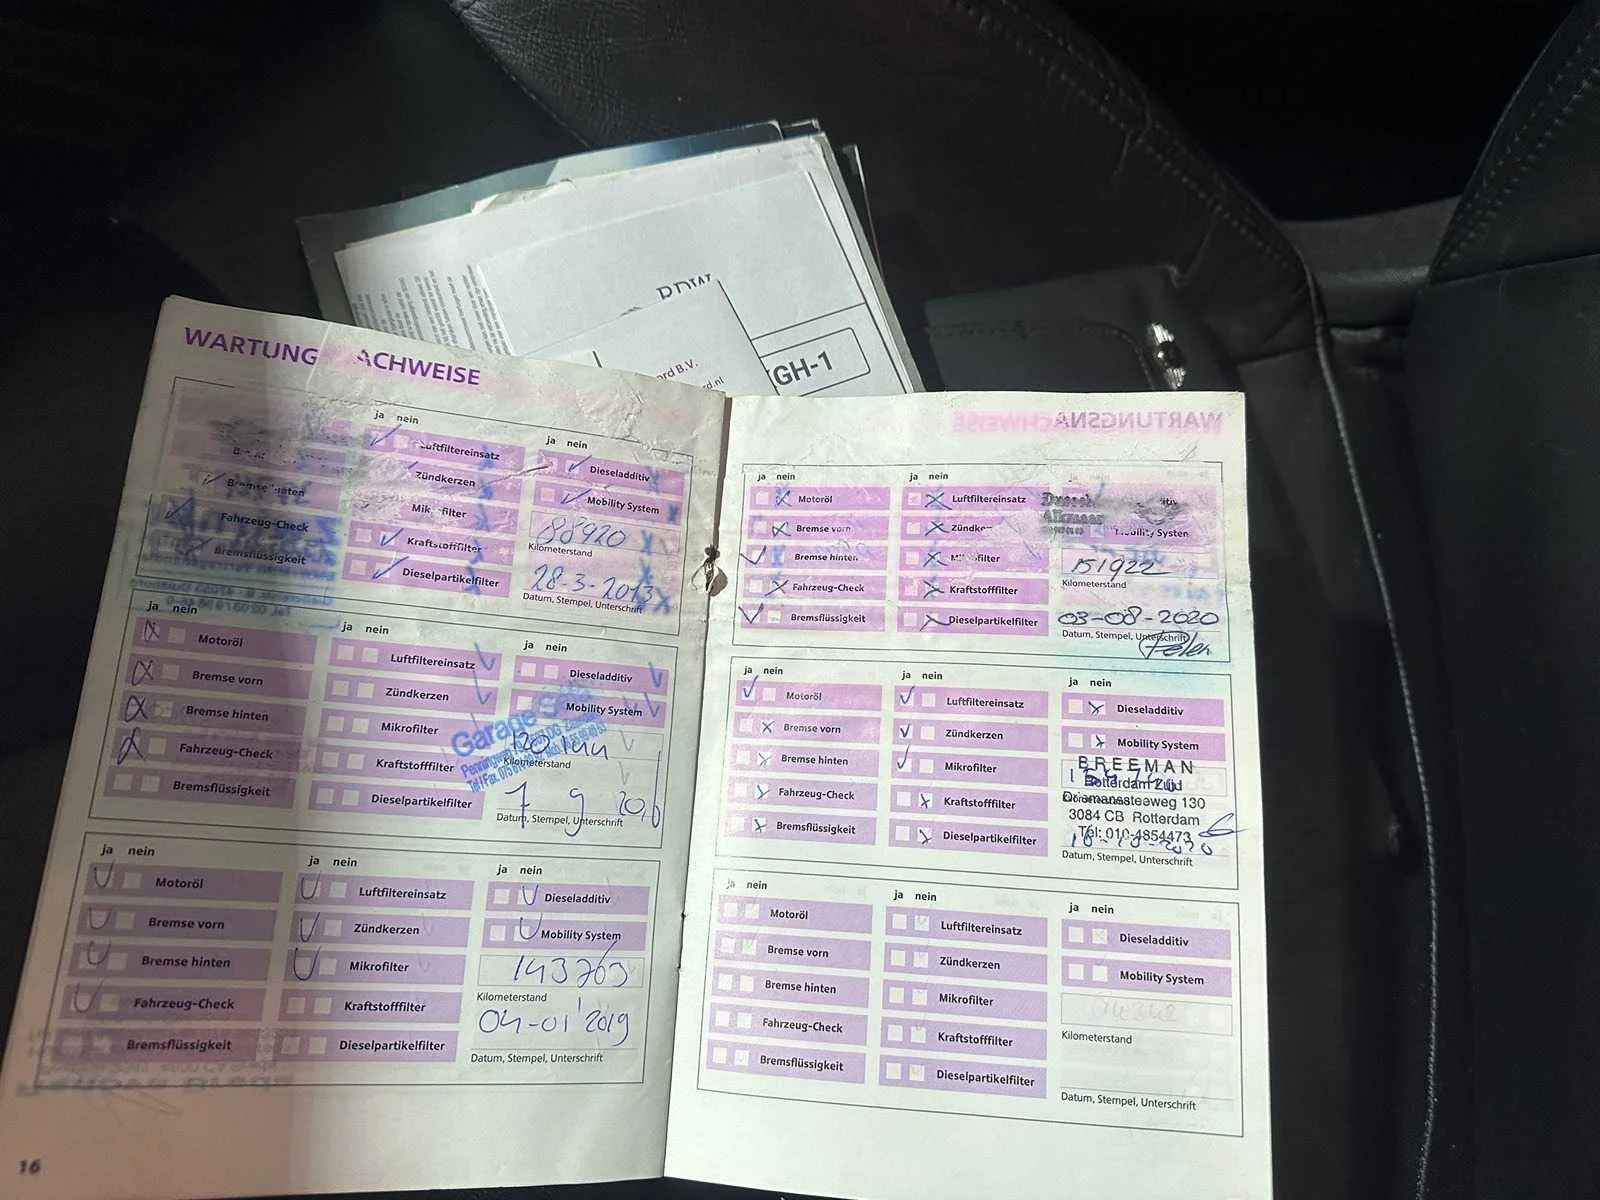 RDW
GH-1
WARTUNG ACHWEISE
ja nein
Luftfiltereinsatz
Zündkerzen
filter
Kraftstofffilter
Dieselpartikelfilter
Fahrzeug-Check
Bremsflüssigkeit
ja nein
Dieseladditiv
Mobility System
88920
Kilometerstand
28-3-2013
Datum, Stempel, Unterschrift
ja nein
Motoröl
Bremse vorn
Bremse hinten
Fahrzeug-Check
Bremsflüssigkeit
ja nein
Luftfiltereinsatz
Zündkerzen
Mikrofilter
Kraftstofffilter
Dieselpartikelfilter
ja nein
Dieseladditiv
Mobility System
Garage
Kilometerstand
Datum, Stempel, Unterschrift
ja nein
Motoröl
Bremse vorn
Bremse hinten
Fahrzeug-Check
Bremsflüssigkeit
ja nein
Luftfiltereinsatz
Zündkerzen
Mikrofilter
Kraftstofffilter
Dieselpartikelfilter
ja nein
Dieseladditiv
Mobility System
143703
Kilometerstand
04-01'2019
Datum, Stempel, Unterschrift
16
ja nein
Motoröl
Bremse vorn
Bremse hinten
Fahrzeug-Check
Bremsflüssigkeit
ja nein
Luftfiltereinsatz
Kraftstofffilter
Dieselpartikelfilter
151922
Kilometerstand
03-08-2020
Datum, Stempel, Unterschrift
ja nein
Motoröl
Bremse vorn
Bremse hinten
Fahrzeug-Check
Bremsflüssigkeit
ja nein
Luftfiltereinsatz
Zündkerzen
Mikrofilter
Kraftstofffilter
Dieselpartikelfilter
ja nein
Dieseladditiv
Mobility System
BREEMAN
Rotterdam Zuid
Driemanssteeweg 130
3084 CB Rotterdam
Tel: 010-4854473
Datum, Stempel, Unterschrift
ja nein
Motoröl
Bremse vorn
Bremse hinten
Fahrzeug-Check
Bremsflüssigkeit
ja nein
Luftfiltereinsatz
Zündkerzen
Mikrofilter
Kraftstofffilter
Dieselpartikelfilter
ja nein
Dieseladditiv
Mobility System
Kilometerstand
Datum, Stempel, Unterschrift